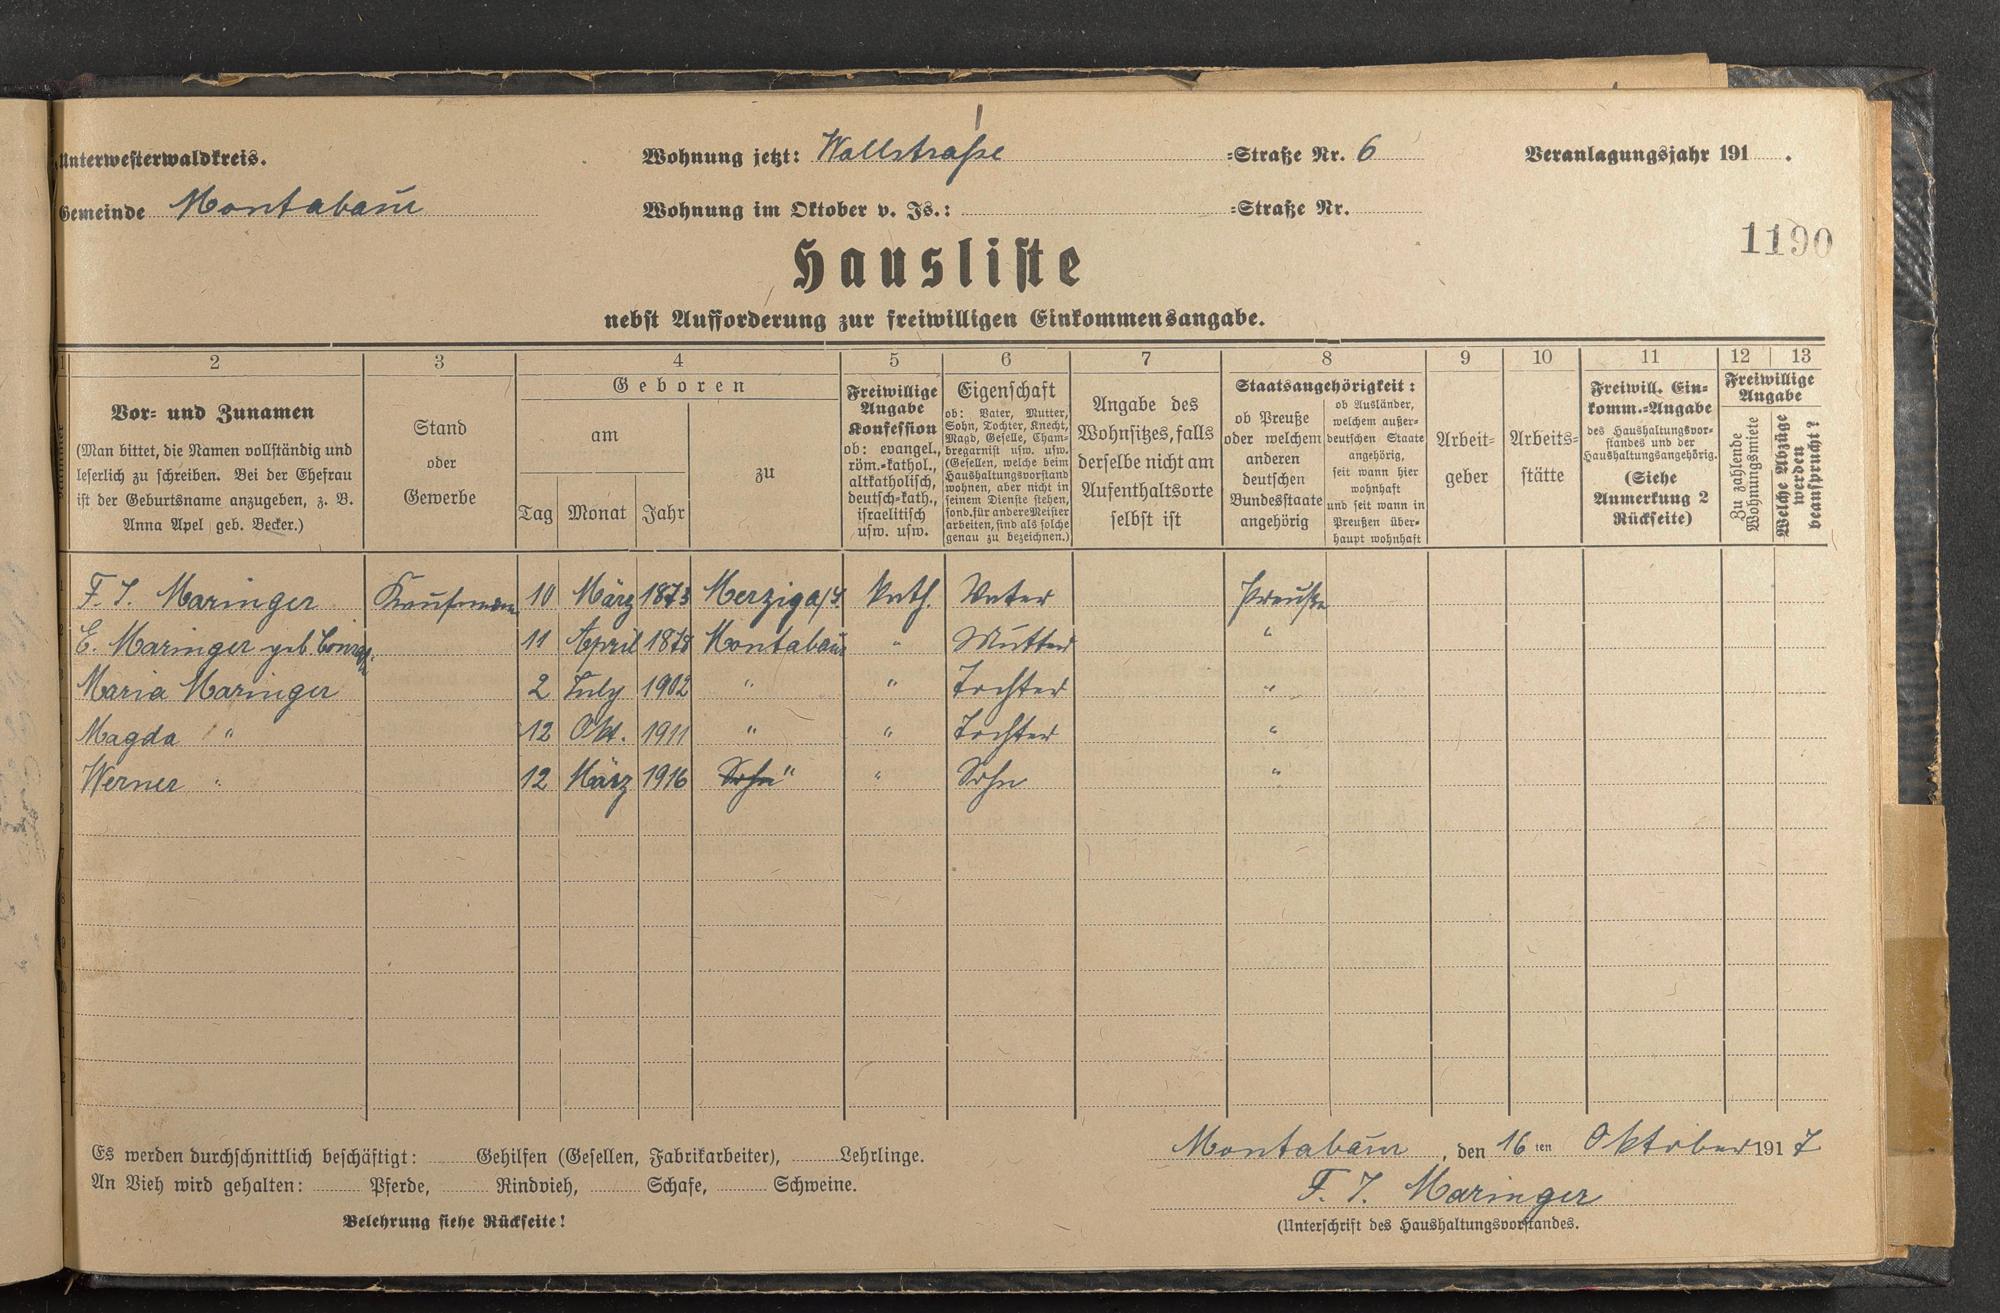 Unterwesterwaldkreis.
Wohnung jetzt: Wallstraße =Straße Nr. 6
Veranlagungsjahr 191 .
Gemeinde Montabaur
Wohnung im Oktober v. Js.: =Straße Nr.
1190
Hausliste
nebst Aufforderung zur freiwilligen Einkommensangabe.
1 2 3 4 5 6 7 8 9 10 11 12 13
Vor- und Zunamen
(Man bittet, die Namen vollständig und
leserlich zu schreiben. Bei der Ehefrau
ist der Geburtsname anzugeben, z. B.
Anna Apel geb. Becker.)
Stand
oder
Gewerbe
Geboren
am
Tag Monat Jahr
zu
Freiwillige
Angabe
Konfession
ob: evangel.,
röm.-kathol.,
altkatholisch,
deutsch-kath.,
israelitisch
usw. usw.
Eigenschaft
ob: Vater, Mutter,
Sohn, Tochter, Knecht,
Magd, Geselle, Cham-
bregarnist usw. usw.
(Gesellen, welche beim
Haushaltungsvorstand
wohnen, aber nicht in
seinem Dienste stehen,
sond. für andere Meister
arbeiten, sind als solche
genau zu bezeichnen.)
Angabe des
Wohnsitzes, falls
derselbe nicht am
Aufenthaltsorte
selbst ist
Staatsangehörigkeit:
ob Preuße
oder welchem
anderen
deutschen
Bundesstaate
angehörig
ob Ausländer,
welchem außer-
deutschen Staate
angehörig,
seit wann hier
wohnhaft
und seit wann in
Preußen über-
haupt wohnhaft
Arbeit-
geber
Arbeits-
stätte
Freiwill. Ein-
komm.-Angabe
des Haushaltungsvor-
standes und der
Haushaltungsangehörig.
(Siehe
Anmerkung 2
Rückseite)
Freiwillige
Angabe
Zu zahlende
Wohnungsmiete
Welche Abzüge
werden
beansprucht?
F. J. Maringer Kaufmann 10 März 1873 Merzig a/S. kath. Vater Preuße
E. Maringer geb. 11 April 1878 Montabaur " Mutter "
Maria Maringer 2 July 1902 " " Tochter "
Magda " 12 Okt. 1911 " " Tochter "
Werner " 12 März 1916 Sohn " " Sohn "
Es werden durchschnittlich beschäftigt: Gehilfen (Gesellen, Fabrikarbeiter), Lehrlinge.
An Vieh wird gehalten: Pferde, Rindvieh, Schafe, Schweine.
Belehrung siehe Rückseite!
Montabaur, den 16 ten Oktober 1917
F. J. Maringer
(Unterschrift des Haushaltungsvorstandes.